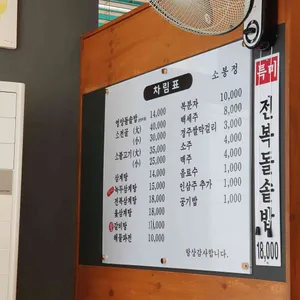 차림표
소봉정
영양돌솥밥 14,000
소전골 (대) 40,000
(소) 30,000
소불고기 (대) 35,000
(소) 25,000
삼계탕 14,000
녹두삼계탕 15,000
전복삼계탕 18,000
옻삼계탕 15,000
갈비탕
해물파전 10,000
복분자 10,000
백세주 8,000
경주밥막걸리 3,000
소주 4,000
맥주 4,000
음료수 1,000
인삼주 추가 1,000
공기밥 1,000
항상감사합니다.
특미
전복돌솥밥
18,000